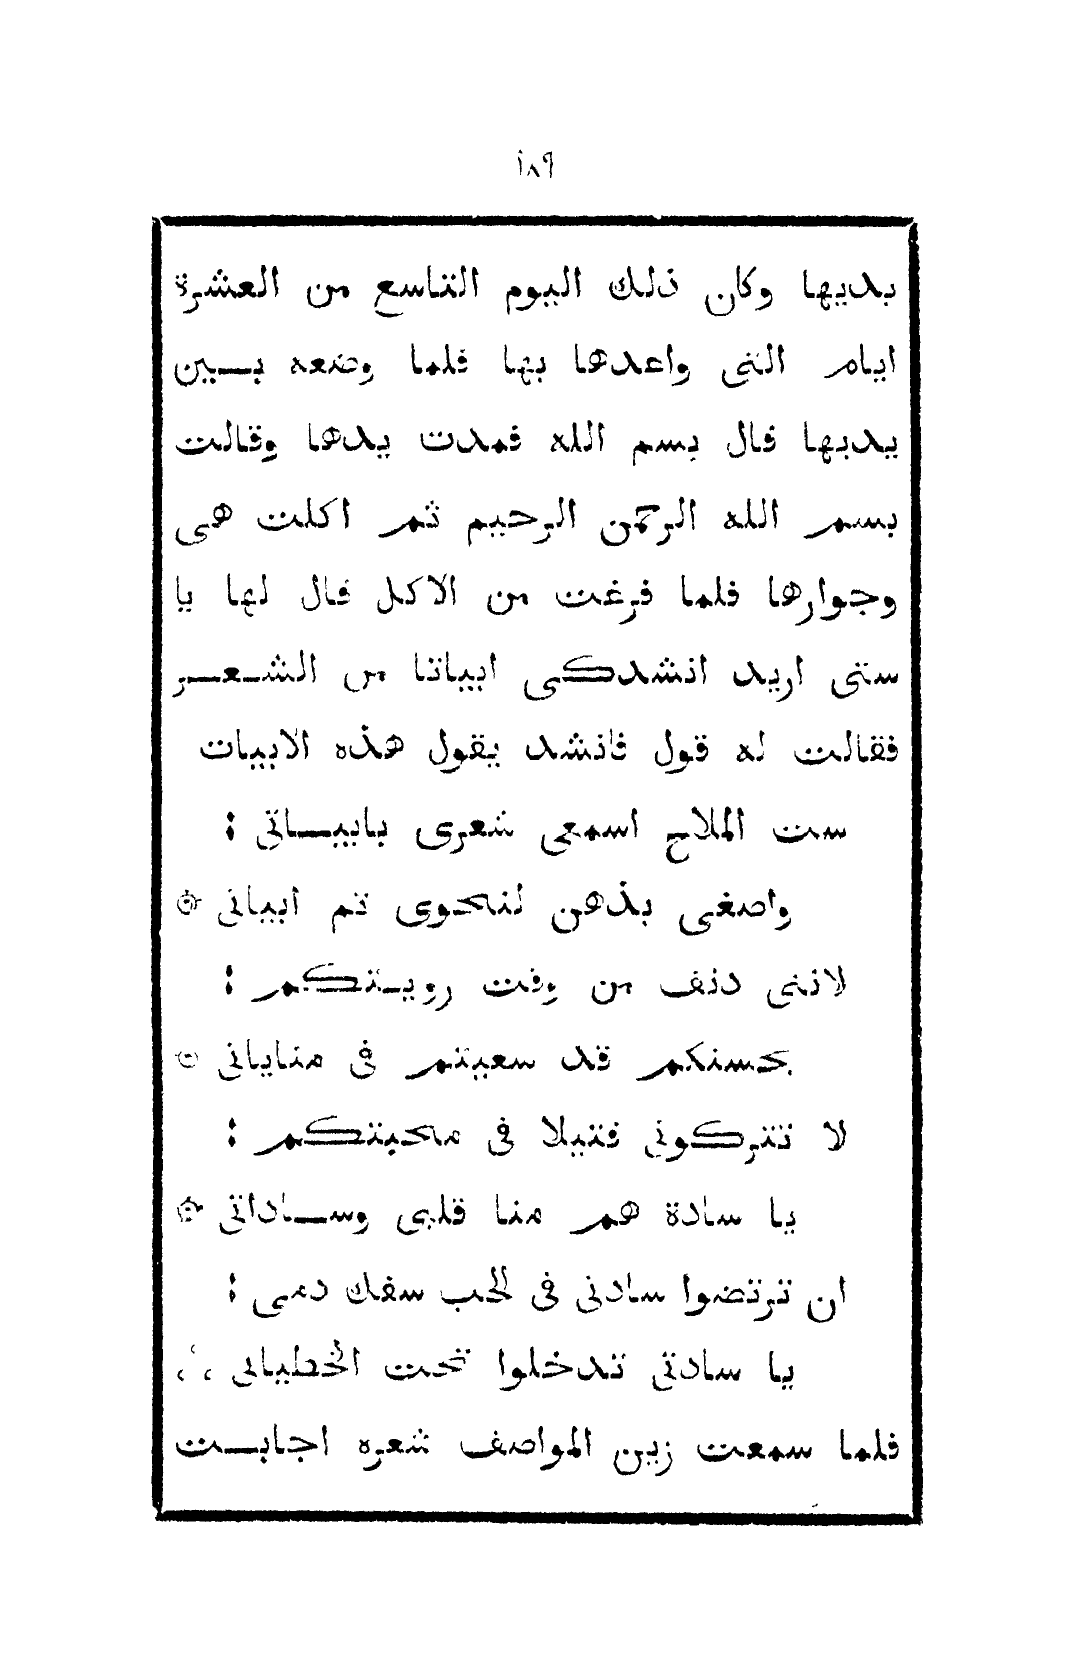 ١٨٩
يديها وكان ذلك اليوم التاسع من العشرة
ايام التى واعدها بها فلما وضعه بــين
يديها قال بسم الله فمدت يدها وقالت
بسم الله الرحمن الرحيم ثم اكلت هى
وجوارها فلما فرغت من الاكل قال لها يا
ستى اريد انشدكى ابياتا من الشــعــر
فقالت له قول فانشد يقول هذه الابيات
ست الملاح اسمعى شعرى بابيــاتى :
واصغى بذهن لنحوى ثم ابياتى ۞
لاننى دنف من وقت رويــتكم :
بحسنكم قد سعيتم فى مناياتى ۞
لا تتركونى قتيلا فى محبتكم :
يا سادة هم منا قلبى وســاداتى ۞
ان ترتضوا سادتى فى الحب سفك دمى :
يا سادتى تدخلوا تحت الخطياتى ؞
فلما سمعت زين المواصف شعره اجابــت